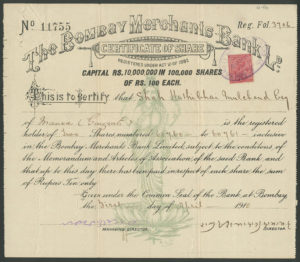 No 11755 Reg. Fol. 3706
The Bombay Merchants Bank Ld.
CERTIFICATE OF SHARE
REGISTERED UNDER ACT VI OF 1882
CAPITAL RS. 10,000,000 IN 100,000 SHARES
OF RS. 100 EACH.
This is to Certify that Shah Hathibhai Mulchand Esq
of is the registered
holder of two Shares numbered to 60761 inclusive
in the Bombay Merchants Bank Limited, subject to the conditions of
the Memorandum and Articles of Association of the said Bank and
that up to this day there has been paid in respect of each share the sum
of Rupees Ten only
Given under the Common Seal of the Bank at Bombay
the First day of April 1910
MANAGING DIRECTOR.
DIRECTOR